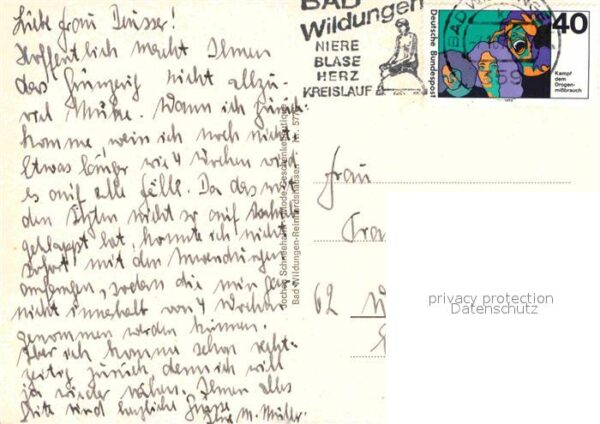 Liebe Frau
Hoffentlich macht Ihnen
das nicht allzu
viel Mühe. Wann ich zurück-
komme, weis ich noch nicht.
Etwas länger wie 4 Wochen wird
es auf alle Fälle. Da das mit
den nicht so auf
geklappt hat, konnte ich nicht
sofort mit den Anwendungen
anfangen, sodass die mir gar
nicht innerhalb von 4 Wochen
genommen werden können.
Aber ich komme schon recht-
zeitig zurück, denn ich will
ja wieder nähen. Ihnen alles
Gute und herzliche Grüße
Ihre M. Müller.
BAD
Wildungen
NIERE
BLASE
HERZ
KREISLAUF
BAD WILDUNGEN
359
Deutsche Bundespost
40
Kampf
dem
Drogen-
mißbrauch
Bad Wildungen-Reinhardshausen
Frau
62
privacy protection
Datenschutz